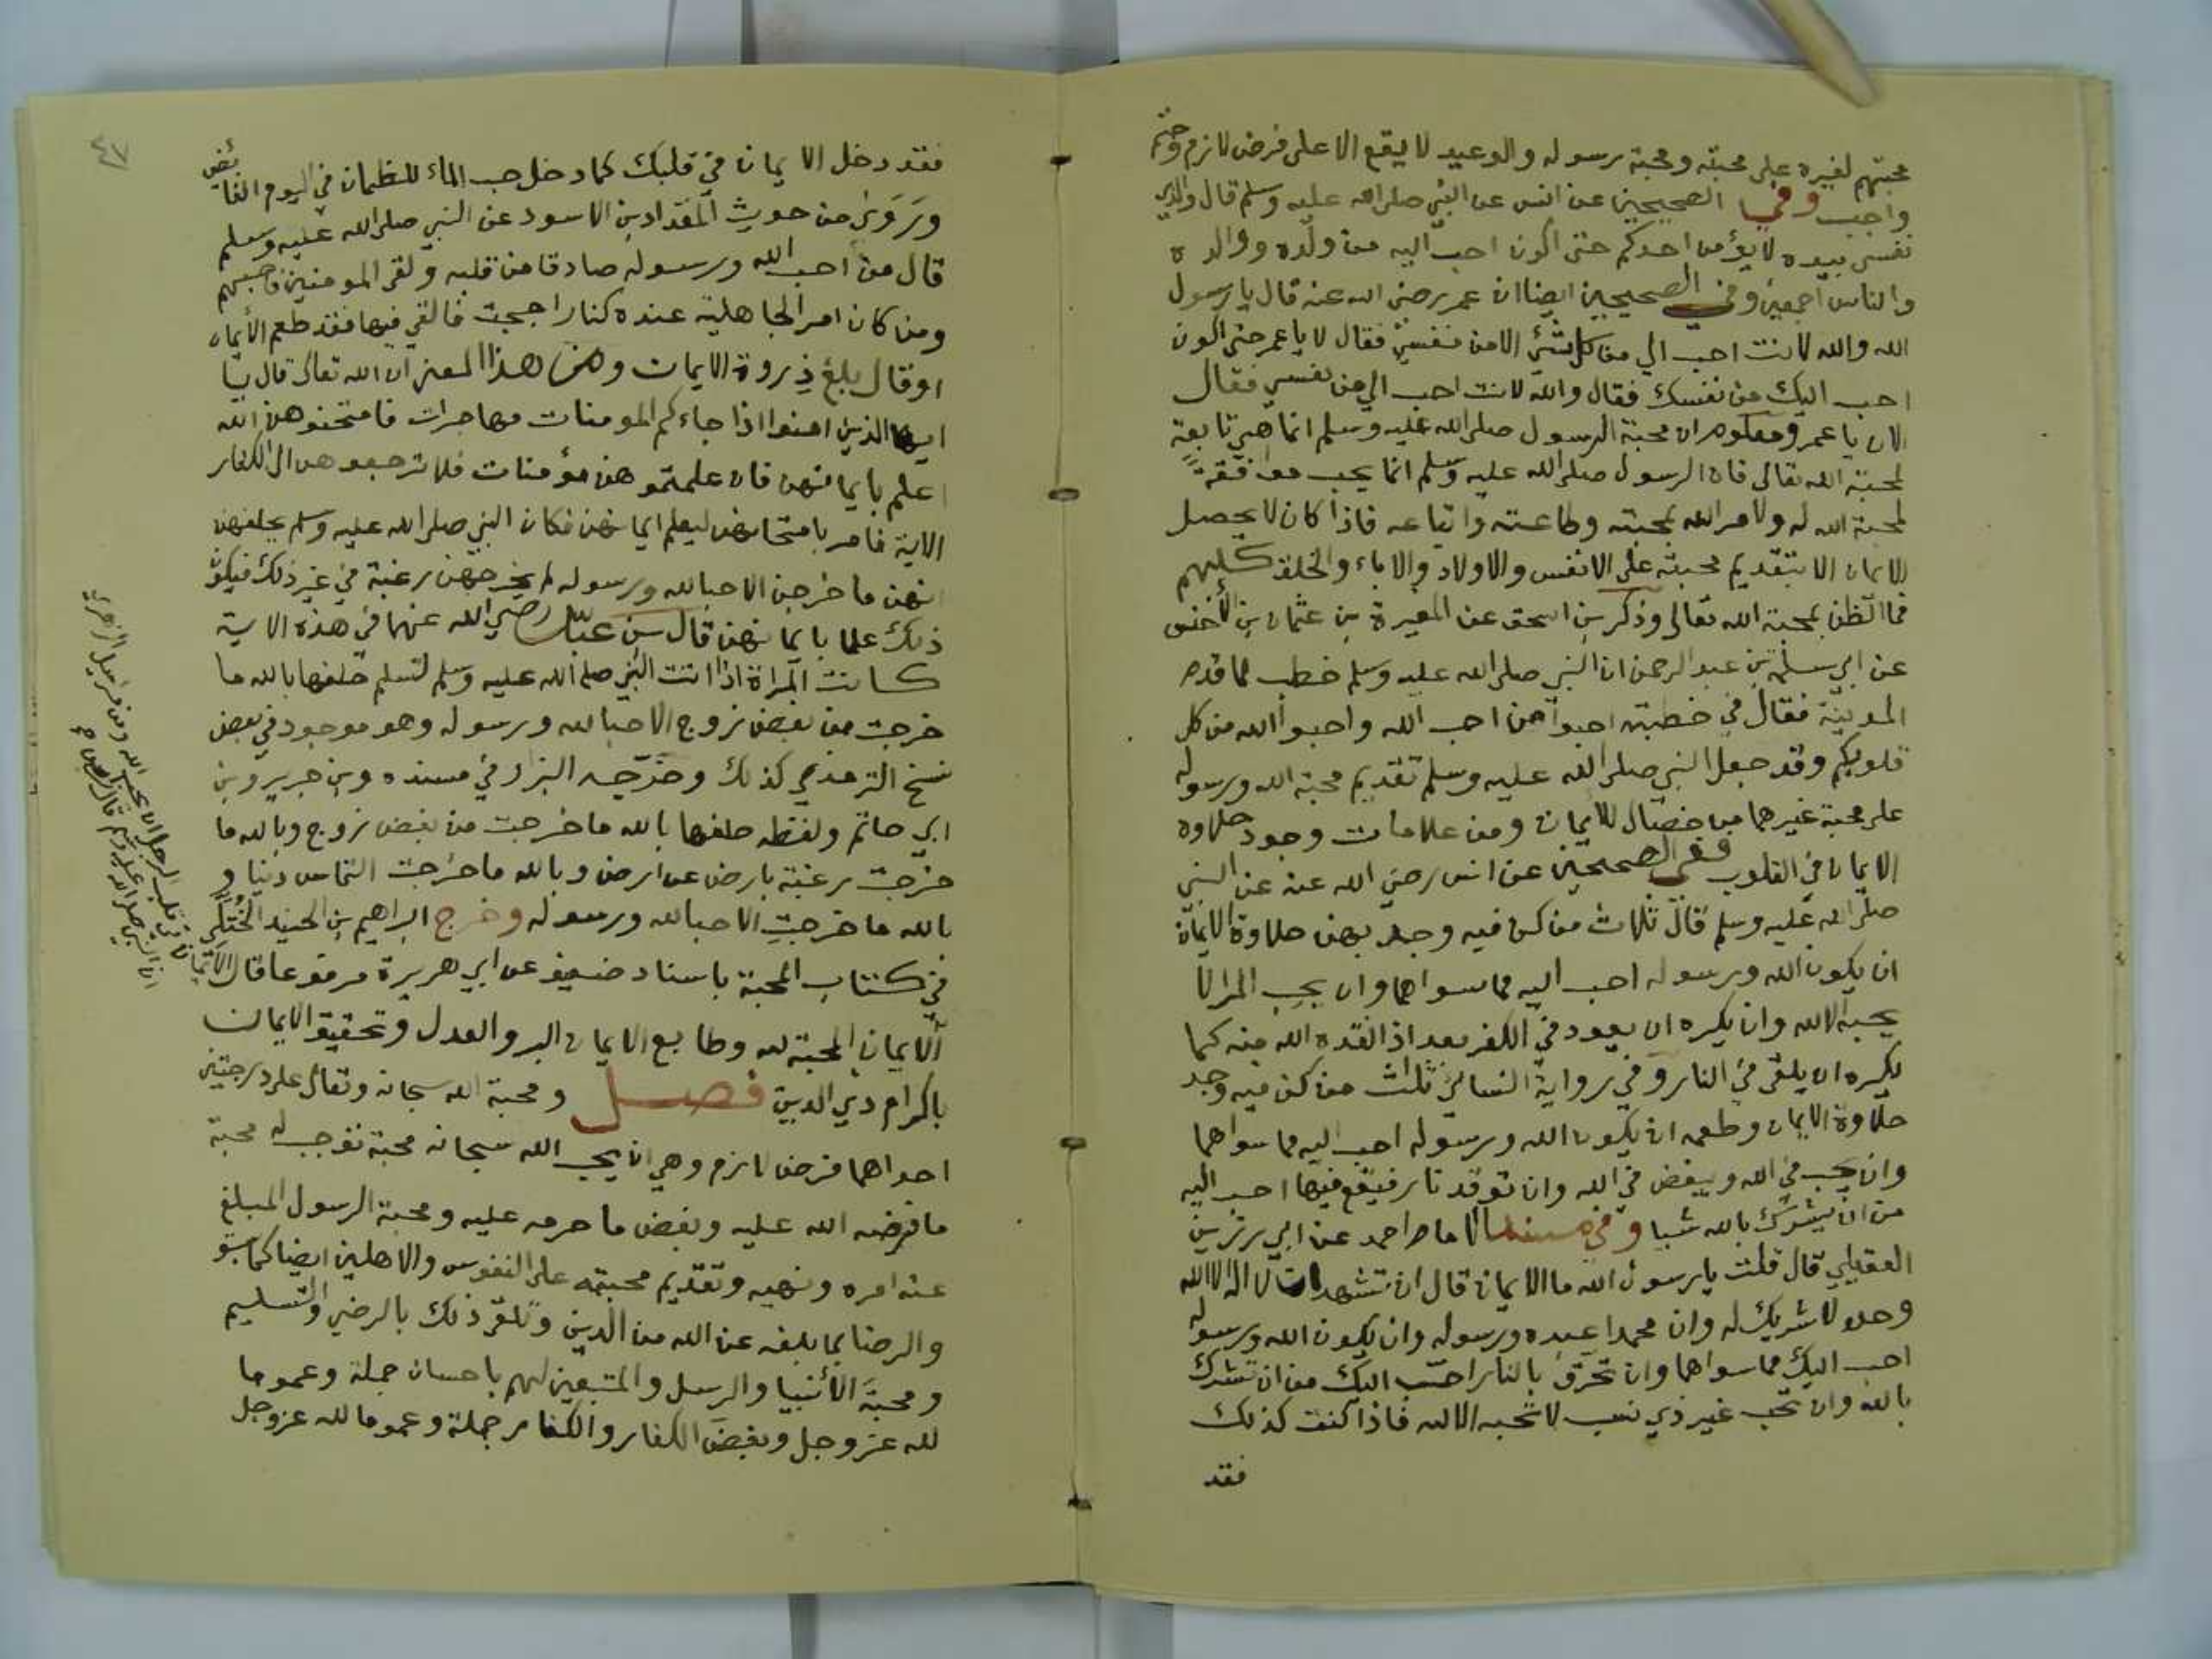 محبتهم لغيره على محبته ومحبة رسوله والوعيد لا يقع الا على فرض لازم وحتم
واجب وفي الصحيحين عن انس عن النبي صلى الله عليه وسلم قال والذي
نفسي بيده لا يؤمن احدكم حتى اكون احب اليه من ولده ووالده
والناس اجمعين وفي الصحيحين ايضا ان عمر رضي الله عنه قال يا رسول
الله والله لانت احب الي من كل شئ الا من نفسي فقال لا يا عمر حتى اكون
احب اليك من نفسك فقال والله لانت احب الي من نفسي فقال
الان يا عمر ومعلوم ان محبة الرسول صلى الله عليه وسلم انما هي تابعة
لمحبة الله تعالى فان الرسول صلى الله عليه وسلم انما يحب موافقة
لمحبة الله له ولامر الله بمحبته وطاعته واتباعه فاذا كان لا يحصل
الايمان الا بتقديم محبته على الانفس والاولاد والاباء والخلق كلهم
فما الظن بمحبة الله تعالى وذكر بن اسحق عن المغيرة بن عثمان بن الأخنس
عن ابي سلمة بن عبد الرحمن ان النبي صلى الله عليه وسلم خطب لما قدم
المدينة فقال في خطبته احبوا من احب الله واحبوا الله من كل
قلوبكم وقد جعل النبي صلى الله عليه وسلم تقديم محبة الله ورسوله
على محبة غيرهما من خصال الايمان ومن علامات وجود حلاوة
الايمان في القلوب ففي الصحيحين عن انس رضي الله عنه عن النبي
صلى الله عليه وسلم قال ثلاث من كن فيه وجد بهن حلاوة الايمان
ان يكون الله ورسوله احب اليه مما سواهما وان يحب المرا لا
يحبه الا لله وان يكره ان يعود في الكفر بعد اذ انقذه الله منه كما
يكره ان يلقى في النار وفي رواية النسائي ثلاث من كن فيه وجد
حلاوة الايمان وطعمه ان يكون الله ورسوله احب اليه مما سواهما
وان يحب في الله ويبغض في الله وان توقد نار فيقع فيها احب اليه
من ان يشرك بالله شيا وفي مسند الامام احمد عن ابي رزين
العقيلي قال قلت يا رسول الله ما الايمان قال ان تشهد ان لا اله الا الله
وحده لا شريك له وان محمدا عبده ورسوله وان يكون الله ورسوله
احب اليك مما سواهما وان تحرق بالنار احب اليك من ان تشرك
بالله وان تحب غير ذي نسب لا تحبه الا لله فاذا كنت كذلك
فقد
٤٧
فقد دخل الايمان في قلبك كما دخل حب الماء للظمان في اليوم القائض
وتروى من حديث المقداد بن الاسود عن النبي صلى الله عليه وسلم
قال من احب الله ورسوله صادقا من قلبه ولقي المومنين فاحبهم
ومن كان امر الجاهلية عنده كنار اججت فالقي فيها فقد طعم الأيمان
او قال بلغ ذروة الايمان ومن هذا المعنى ان الله تعالى قال يا
ايها الذين امنوا اذا جاءكم المومنات مهاجرات فامتحنوهن الله
اعلم بايمانهن فان علمتموهن مؤمنات فلا ترجعوهن الى الكفار
الاية فامر بامتحانهن ليعلم ايمانهن فكان النبي صلى الله عليه وسلم يحلفهن
انهن ما خرجن الا حبا لله ورسوله لم يخرجهن رغبة في غير ذلك فيكون
ذلك علما بايمانهن قال بن عباس رضي الله عنهما في هذه الاية
كانت المراة اذا اتت النبي صلى الله عليه وسلم لتسلم حلفها بالله ما
خرجت من بغض زوج الا حبا لله ورسوله وهو موجود في بعض
نسخ الترمذي كذلك وخرجه البزار في مسنده وبن جرير وبن
ابي حاتم ولفظه حلفها بالله ما خرجت من بغض زوج وبالله ما
خرجت رغبة بارض عن ارض وبالله ما خرجت التماس دنيا و
بالله ما خرجت الا حبا لله ورسوله وخرج ابراهيم بن الجنيد الختلي
في كتاب المحبة باسناد ضعيف عن ابي هريرة مرفوعا قال
الايمان المحبة لله وطابع الايمان البر والعدل وتحقيق الايمان
باكرام ذي الدين فصل ومحبة الله سبحانه وتعالى على درجتين
احداهما فرض لازم وهي ان يحب الله سبحانه محبة توجب له محبة
ما فرضه الله عليه وبغض ما حرمه عليه ومحبة الرسول المبلغ
عنه امره ونهيه وتقديم محبته على النفوس والاهلين ايضا كما سبق
والرضا بما بلغه عن الله من الدين وتلقي ذلك بالرضى والتسليم
ومحبة الأنبيا والرسل والمتبعين لهم باحسان جملة وعموما
لله عز وجل وبغض الكفار والكفار جملة وعموما لله عز وجل
الايمان في قلب الرجل ان يحب الله ومن مرسيل الزهري
ان النبي صلى الله عليه وسلم قال